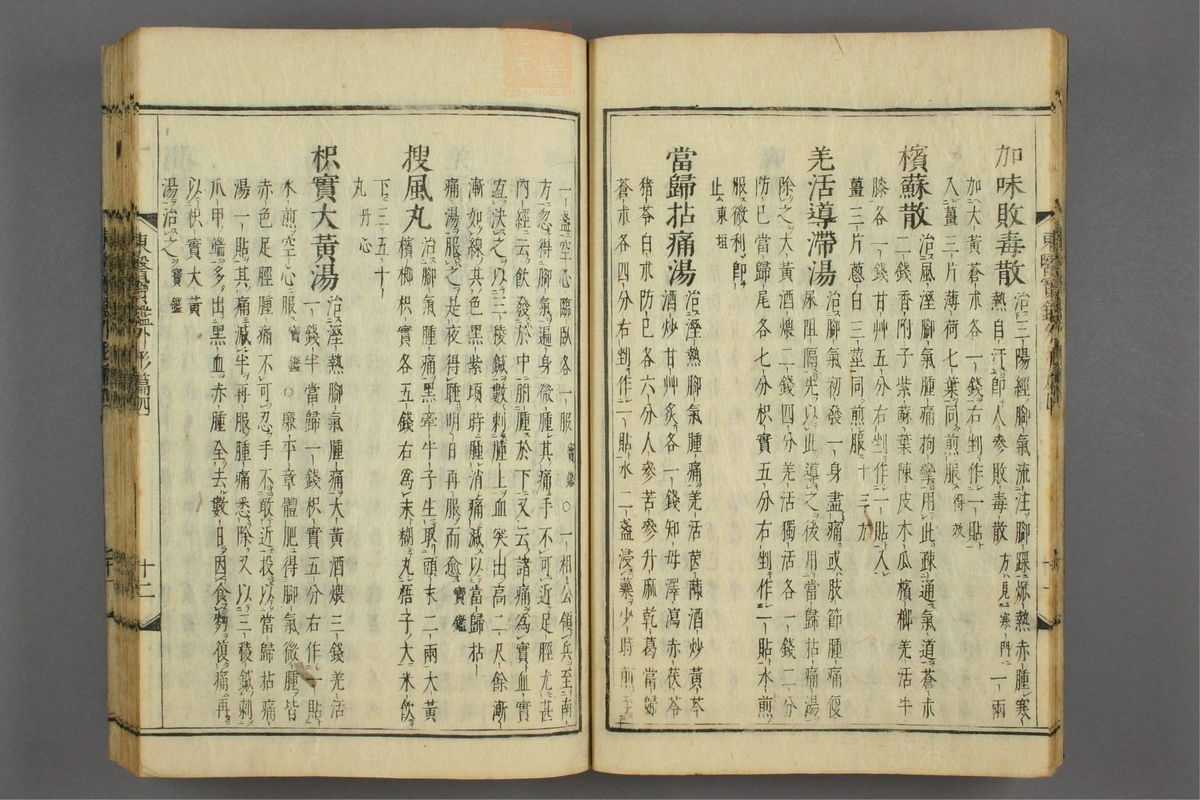 加味敗毒散 治三陽經腳氣流注腳踝焮熱赤腫寒
熱自汗即人參敗毒散方見寒門一兩
加大黃蒼朮各一錢右剉作一貼
入薑三片薄荷七葉同煎服得效
檳蘇散 治風溼腳氣腫痛拘攣用此疎通氣道蒼朮
二錢香附子紫蘇葉陳皮木瓜檳榔羌活牛
膝各一錢甘艸五分右剉作一貼入
薑三片蔥白三莖同煎服十三方
羌活導滯湯 治腳氣初發一身盡痛或肢節腫痛便
尿阻隔先以此導之後用當歸拈痛湯
除之大黃酒煨二錢四分羌活獨活各一錢二分
防已當歸尾各七分枳實五分右剉作一貼水煎
服微利即
止東垣
當歸拈痛湯 治溼熱腳氣腫痛羌活茵蔯酒炒黃芩
酒炒甘艸炙各一錢知母澤瀉赤茯苓
猪苓白朮防已各六分人參苦參升麻乾葛當歸
蒼朮各四分右剉作一貼水二盞浸藥少時煎至
一盞空心臨臥各一服寶鑑○一相公領兵至南
方忽得腳氣遍身微腫其痛手不可近足脛尤甚
內經云飲發於中胕腫於下又云諸痛為實血實
宜決之以三稜鍼數刺腫上血突出高二尺餘漸
漸如線其色黑紫頃時腫消痛減以當歸拈
痛湯服之是夜得睡明日再服而愈寶鑑
搜風丸 治腳氣腫痛黑牽牛子生取頭末二兩大黃
檳榔枳實各五錢右為末糊丸梧子大米飲
下三五十
丸丹心
枳實大黃湯 治溼熱腳氣腫痛大黃酒煨三錢羌活
一錢半當歸一錢枳實五分右作一貼
水煎空心服寶鑑○廉平章體肥得腳氣微腫皆
赤色足脛腫痛不可忍手不敢近投以當歸拈痛
湯一貼其痛減半再服腫痛悉除又以三稜鍼刺
爪甲端多出黑血赤腫全去數日因食麪復痛再
以枳實大黃
湯治之寶鑑
東醫寶鑑外形篇四
十二